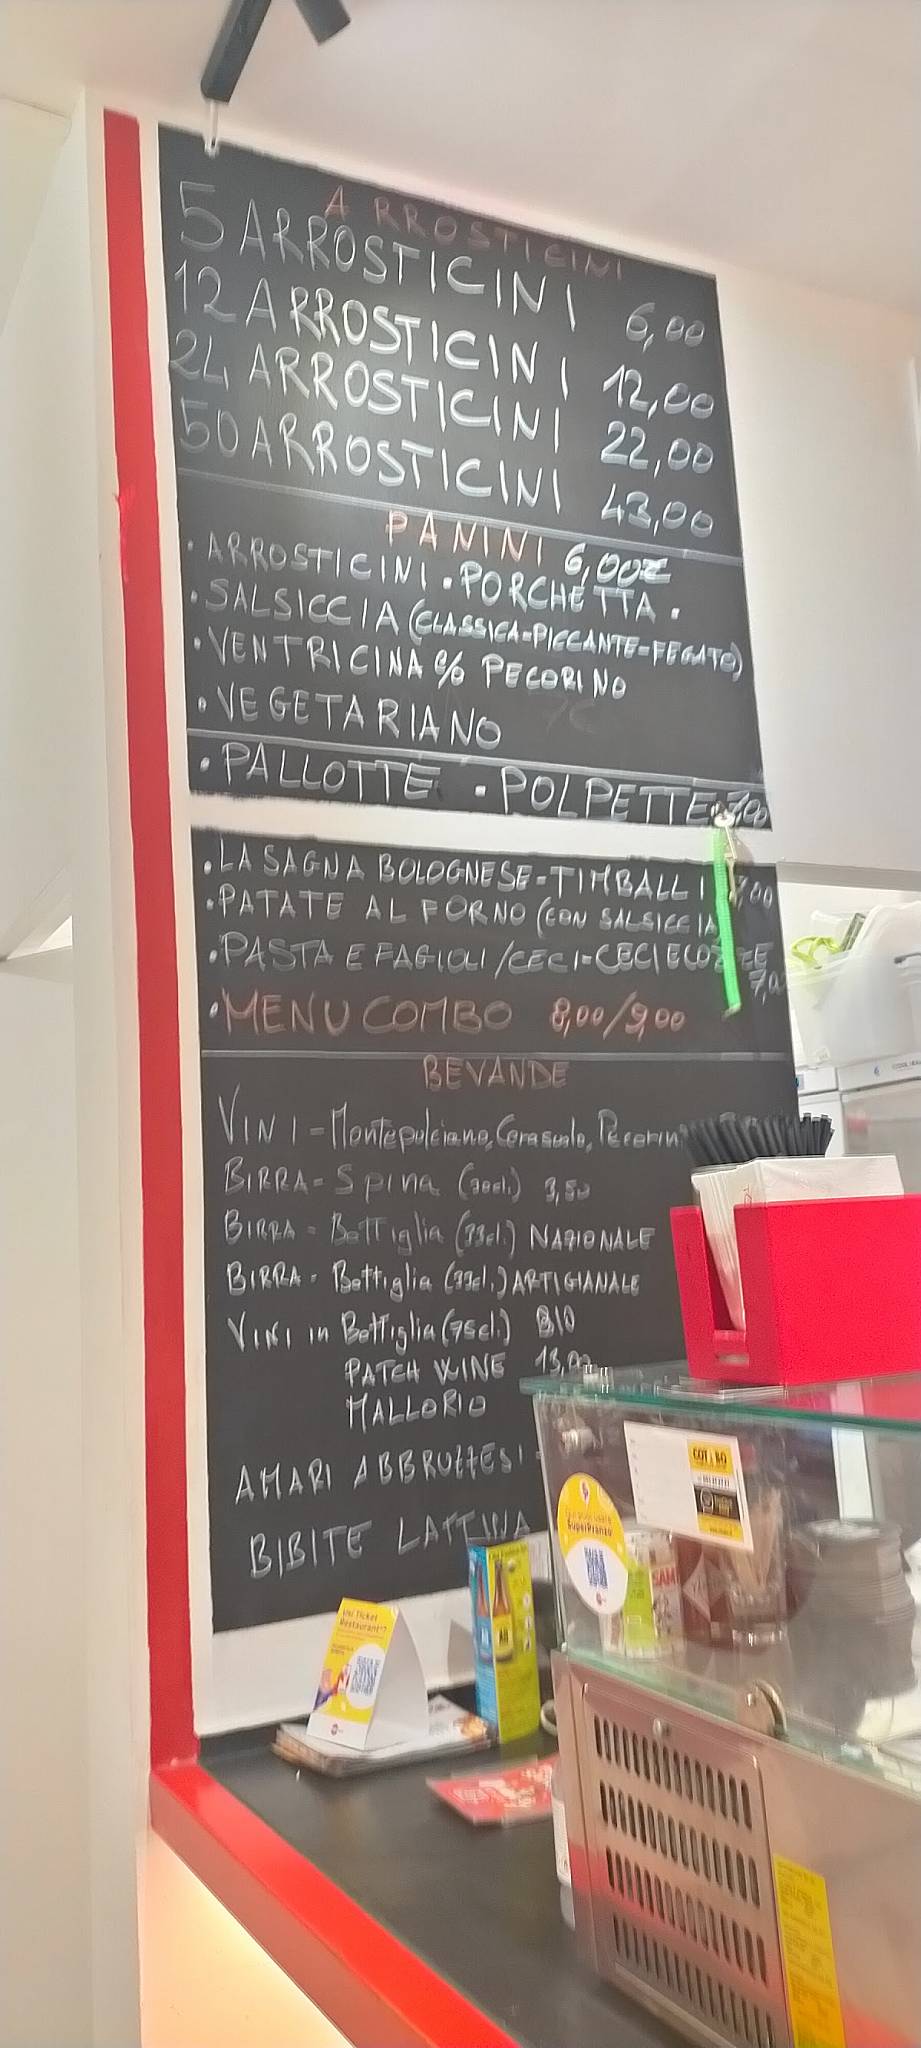 ARROSTICINI
5 ARROSTICINI 6,00
12 ARROSTICINI 12,00
24 ARROSTICINI 22,00
50 ARROSTICINI 43,00
PANINI 6,00€
• ARROSTICINI • PORCHETTA •
• SALSICCIA (CLASSICA=PICCANTE=FEGATO)
• VENTRICINA e/o PECORINO
• VEGETARIANO
• PALLOTTE • POLPETTE 7,00
• LASAGNA BOLOGNESE - TIMBALLI 7,00
• PATATE AL FORNO (CON SALSICCIA
• PASTA E FAGIOLI / CECI = CECI E COZZE
7,00
• MENU COMBO 8,00/9,00
BEVANDE
VINI - Montepulciano, Cerasuolo,
BIRRA - Spina (30cl.) 3,50
BIRRA - Bottiglia (33cl.) NAZIONALE
BIRRA - Bottiglia (33cl.) ARTIGIANALE
VINI in Bottiglia (75cl.) BIO
PATCH WINE 13,00
MALLORIO
AMARI ABBRUZZESI
BIBITE LATTINA
Ticket
Restaurant